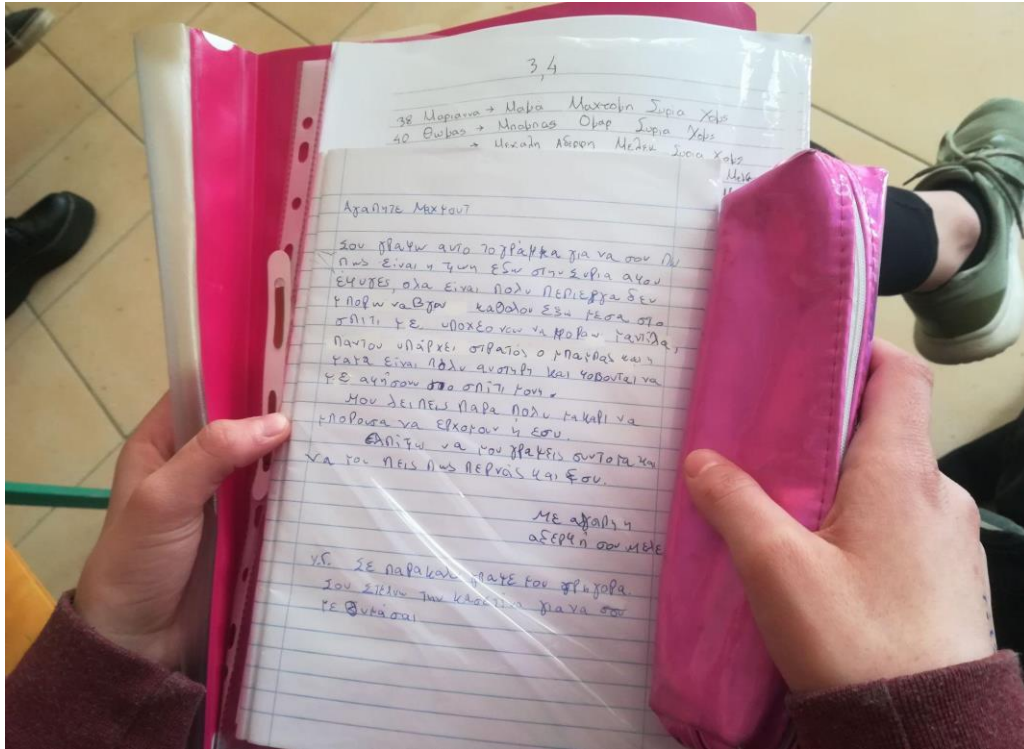 3,4
38 Μαριαννα → Μαμά Μαχτουμη Συρια Χομς
40 Θωμας → Μπαμπας Ομαρ Συρια Χομς
→ Μιχαλη Αδερφη Μελεκ Συρια Χομς
Αγαπητε Μαχμουτ
Σου γραφω αυτο το γράμμα για να σου πω
πως είναι η ζωη εδω στην Συρια αφου
έφυγες, ολα είναι πολυ περιεργα δεν
μπορω να βγαν καθολου εξω μεσα στο
σπιτι με υποχρεο νουν να φοραω μαντιλα,
παντου υπάρχει στρατός ο μπαμπας και η
μαμα είναι πολυ αυστηρη και φοβουνται να
με αφησουν στο σπιτι μονη.
Μου λειπεις παρα πολυ μακαρι να
μπορουσα να ερχομουν ή εσυ.
Ελπιζω να μου γραψεις συντομα και
να μου πεις πως περνάς και εσυ.
Με αγαπη η
αδερφη σου Μελε
υ.γ. Σε παρακαλω γραψε μου γρηγορα.
Σου στελνω την κασετίνα για να
με θυμάσαι